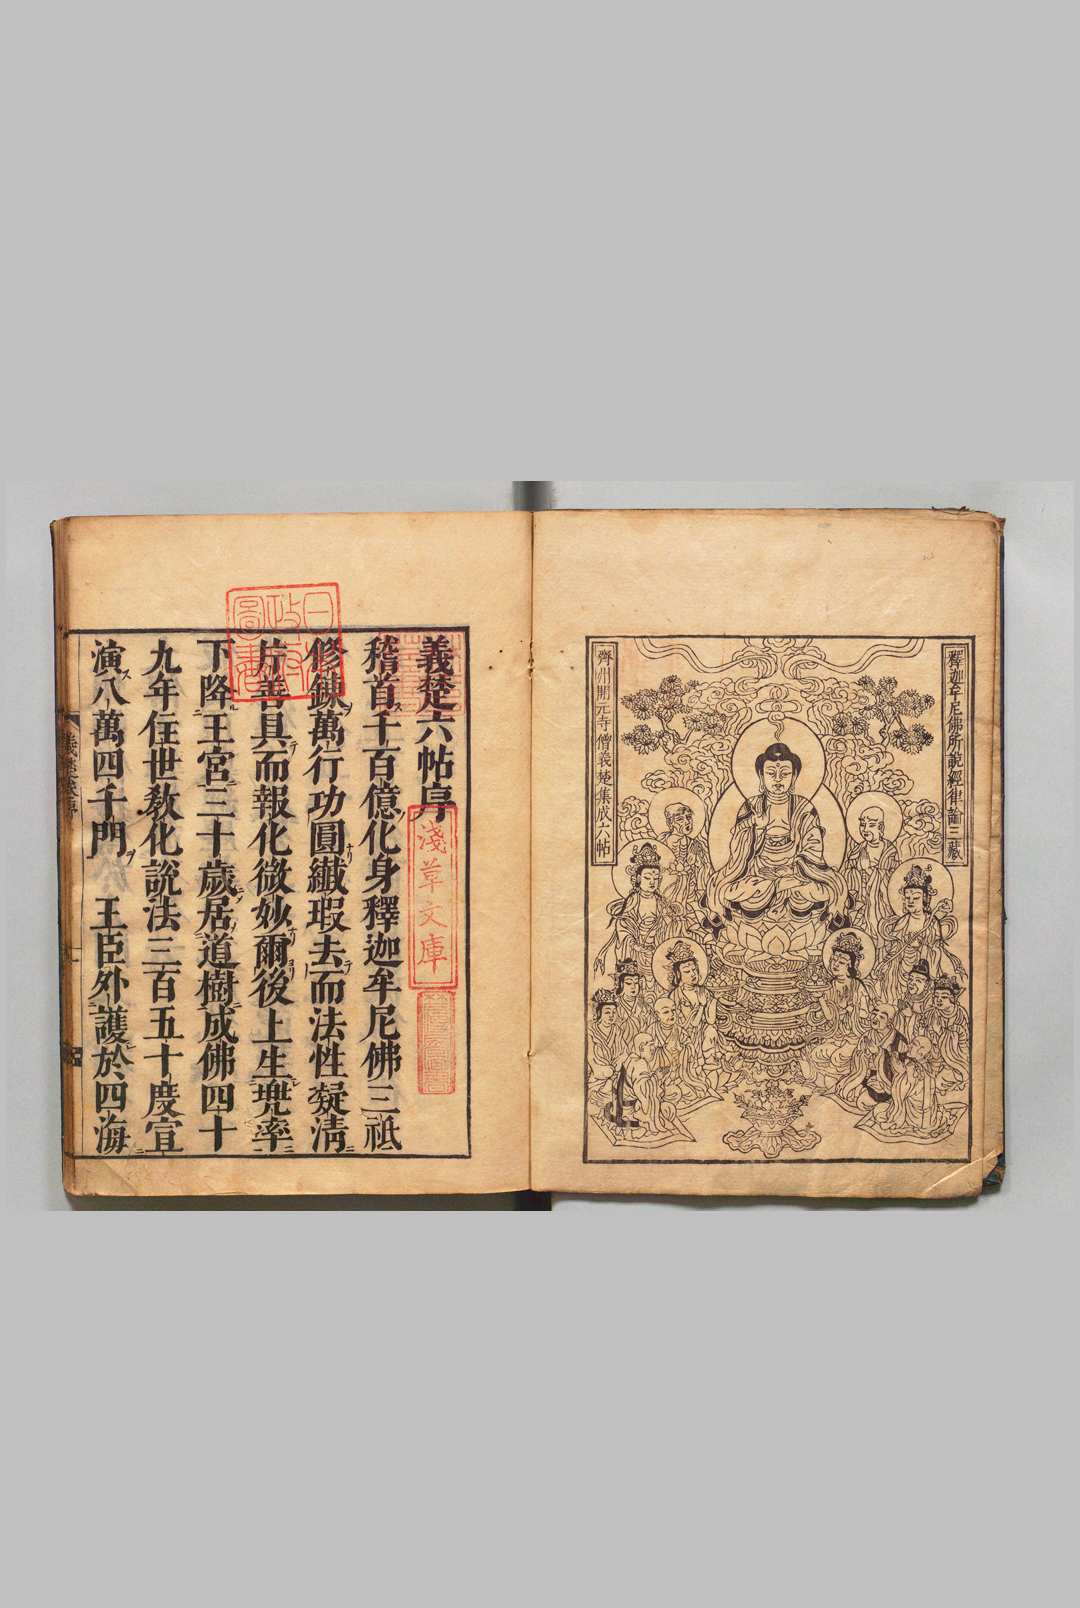 釋迦牟尼佛所說經律論三藏
齊州開元寺僧義楚集成六帖
義楚六帖序
稽首千百億化身釋迦牟尼佛三祇
修鍊萬行功圓纎瑕去而法性凝清
片善具而報化微妙爾後上生兜率
下降王宮三十歲居道樹成佛四十
九年住世教化說法三百五十度宣
演八萬四千門 王臣外護於四海
淺草文庫
日本
政府
圖書